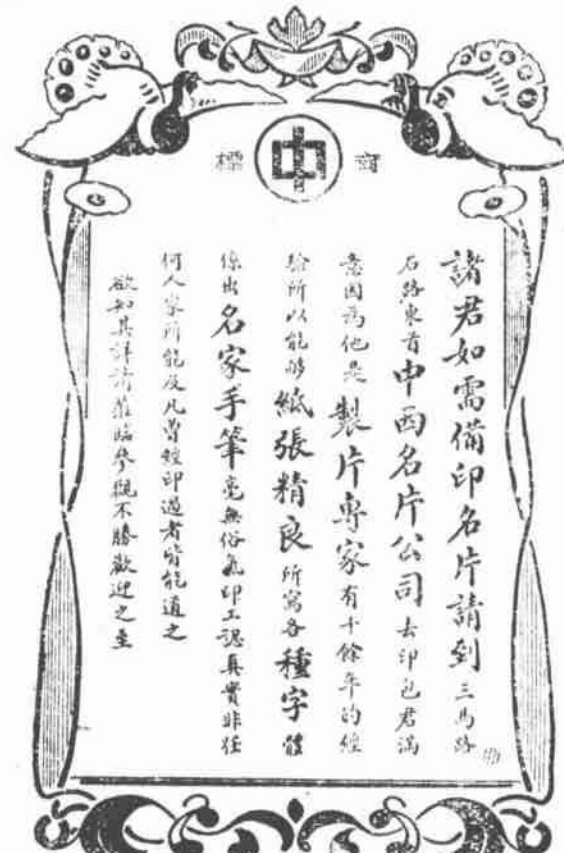 商標
中
諸君如需備印名片請到三馬路
石路東首中西名片公司去印包君滿
意因爲他是製片專家有十餘年的經
驗所以能够紙張精良所寫各種字體
係出名家手筆毫無俗氣印工認真實非任
何人家所能及凡曾經印過者皆能道之
欲知其詳請蒞臨參觀不勝歡迎之至